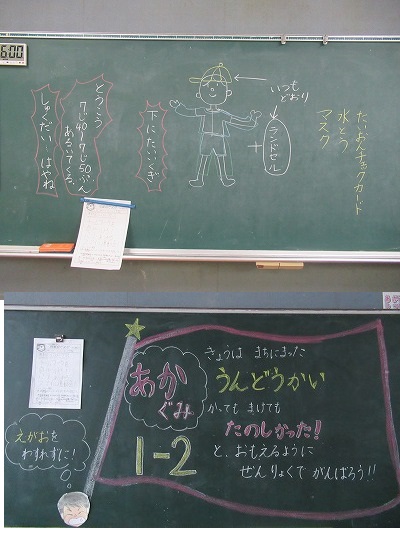 6:00
たいおんチェックカード
水とう
マスク
いつも
どおり
ランドセル
+
下にたいいくぎ
とうこう
7じ40〜7じ50ぷん
あるいてくる。
しゅくだい…はやね
きょうは まちにまった
うんどうかい
かっても まけても
たのしかった!
と、おもえるように
ぜんりょくで がんばろう!!
あか
ぐみ
1-2
えがおを
わすれずに!